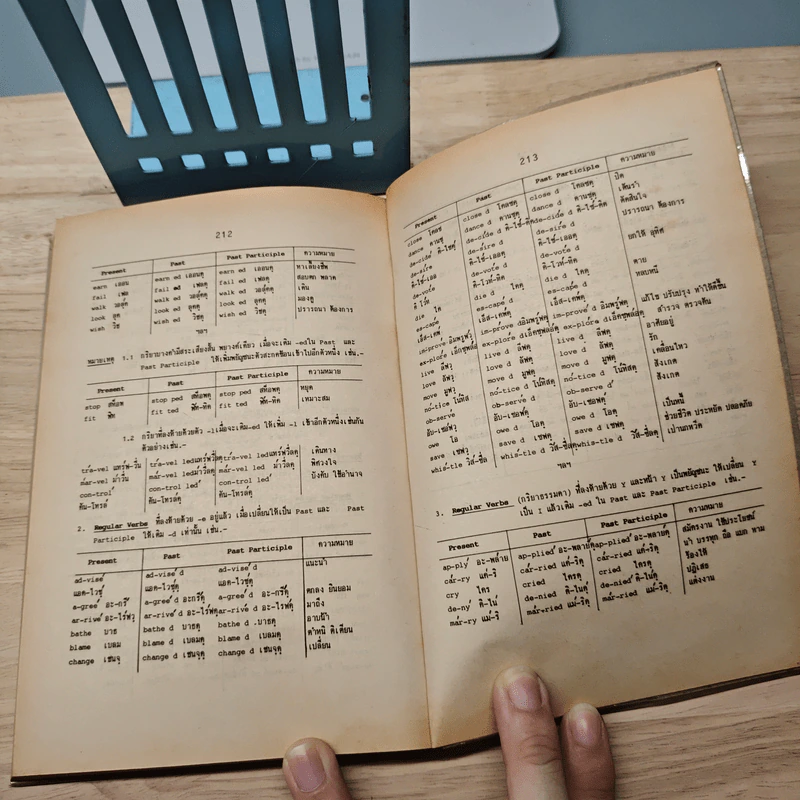 212
Present Past Past Participle ความหมาย
earn เออน earn ed เออนดฺ earn ed เออนดฺ หาเลี้ยงชีพ
fail เฟล fail ed เฟลดฺ fail ed เฟลดฺ สอบตก พลาด
walk วอล์คฺ walk ed วอล์คดฺ walk ed วอล์คดฺ เดิน
look ลุค look ed ลุคดฺ look ed ลุคดฺ มองดู
wish วิช wish ed วิชดฺ wish ed วิชดฺ ปรารถนา ต้องการ
ฯลฯ
หมายเหตุ 1.1 กริยาบางคำมีสระเสียงสั้น พยางค์เดียว เมื่อจะเติม -ed ใน Past และ
Past Participle ให้เพิ่มพยัญชนะตัวสะกดซ้อนเข้าไปอีกตัวหนึ่ง เช่น.-
Present Past Past Participle ความหมาย
stop สต็อพ stop ped สต็อพดฺ stop ped สต็อพดฺ หยุด
fit ฟิท fit ted ฟิท-ทิด fit ted ฟิท-ทิด เหมาะสม
1.2 กริยาที่ลงท้ายด้วยตัว -l เมื่อจะเติม -ed ให้เพิ่ม -l เข้าอีกตัวหนึ่งเช่นกัน
ตัวอย่างเช่น.-
tra-vel tra-vel led tra-vel led เดินทาง
mar-vel mar-vel led mar-vel led พิศวงใจ
con-trol con-trol led con-trol led บังคับ ใช้อำนาจ
คัน-โทรล์ คัน-โทรล์ดฺ คัน-โทรล์ดฺ
2. Regular Verbs ที่ลงท้ายด้วย -e อยู่แล้ว เมื่อเปลี่ยนให้เป็น Past และ Past
Participle ให้เติม -d เท่านั้น เช่น.-
Present Past Past Participle ความหมาย
ad-vise ad-vise d ad-vise d แนะนำ
แอด-ไวซฺ แอด-ไวซฺดฺ แอด-ไวซฺดฺ
a-gree อะ-กรี a-gree d อะ-กรีดฺ a-gree d อะ-กรีดฺ ตกลง ยินยอม
ar-rive อะ-ไรฟวฺ ar-rive d ar-rive d มาถึง
bathe บาธ bathe d บาธดฺ bathe d บาธดฺ อาบน้ำ
blame เบลม blame d เบลมดฺ blame d เบลมดฺ ตำหนิ ติเตียน
change เชนจฺ change d เชนจฺดฺ change d เชนจฺดฺ เปลี่ยน
213
Present Past Past Participle ความหมาย
close โคลซ close d โคลซดฺ close d โคลซดฺ ปิด
dance ดานซฺ dance d ดานซฺดฺ dance d ดานซฺดฺ เต้นรำ
de-cide ดิ-ไซ้ดฺ de-cide d ดิ-ไซ้-ดิด de-cide d ดิ-ไซ้-ดิด ตัดสินใจ
de-sire de-sire d de-sire d ปรารถนา ต้องการ
de-vote de-vote d de-vote d ยกให้ อุทิศ
die ได die d ไดดฺ die d ไดดฺ ตาย
es-cape es-cape d es-cape d หลบหนี
im-prove im-prove d im-prove d แก้ไข ปรับปรุง ทำให้ดีขึ้น
ex-plore ex-plore d ex-plore d สำรวจ ตรวจค้น
live ลีฟวฺ live d ลีฟดฺ live d ลีฟดฺ อาศัยอยู่
love ลัฟวฺ love d ลัฟดฺ love d ลัฟดฺ รัก
move มูฟวฺ move d มูฟดฺ move d มูฟดฺ เคลื่อนไหว
no-tice no-tice d no-tice d สังเกต
ob-serve ob-serve d ob-serve d สังเกต
owe โอ owe d โอดฺ owe d โอดฺ เป็นหนี้
save เซฟวฺ save d เซฟดฺ save d เซฟดฺ ช่วยชีวิต ประหยัด ปลอดภัย
whis-tle วิส-ซึล whis-tle d วิส-ซึลดฺ whis-tle d วิส-ซึลดฺ เป่านกหวีด
ฯลฯ
3. Regular Verbs (กริยาธรรมดา) ที่ลงท้ายด้วย Y และหน้า Y เป็นพยัญชนะ ให้เปลี่ยน Y
เป็น I แล้วเติม -ed ใน Past และ Past Participle เช่น.-
Present Past Past Participle ความหมาย
ap-ply อะ-พลาย ap-plied อะ-พลายดฺ ap-plied อะ-พลายดฺ สมัครงาน ใช้ประโยชน์
car-ry แค้-ริ car-ried แค้-ริดฺ car-ried แค้-ริดฺ นำ บรรทุก ถือ แบก หาม
cry ไคร cried ไครดฺ cried ไครดฺ ร้องไห้
de-ny ดิ-ไน de-nied ดิ-ไนดฺ de-nied ดิ-ไนดฺ ปฏิเสธ
mar-ry แม้-ริ mar-ried แม้-ริดฺ mar-ried แม้-ริดฺ แต่งงาน